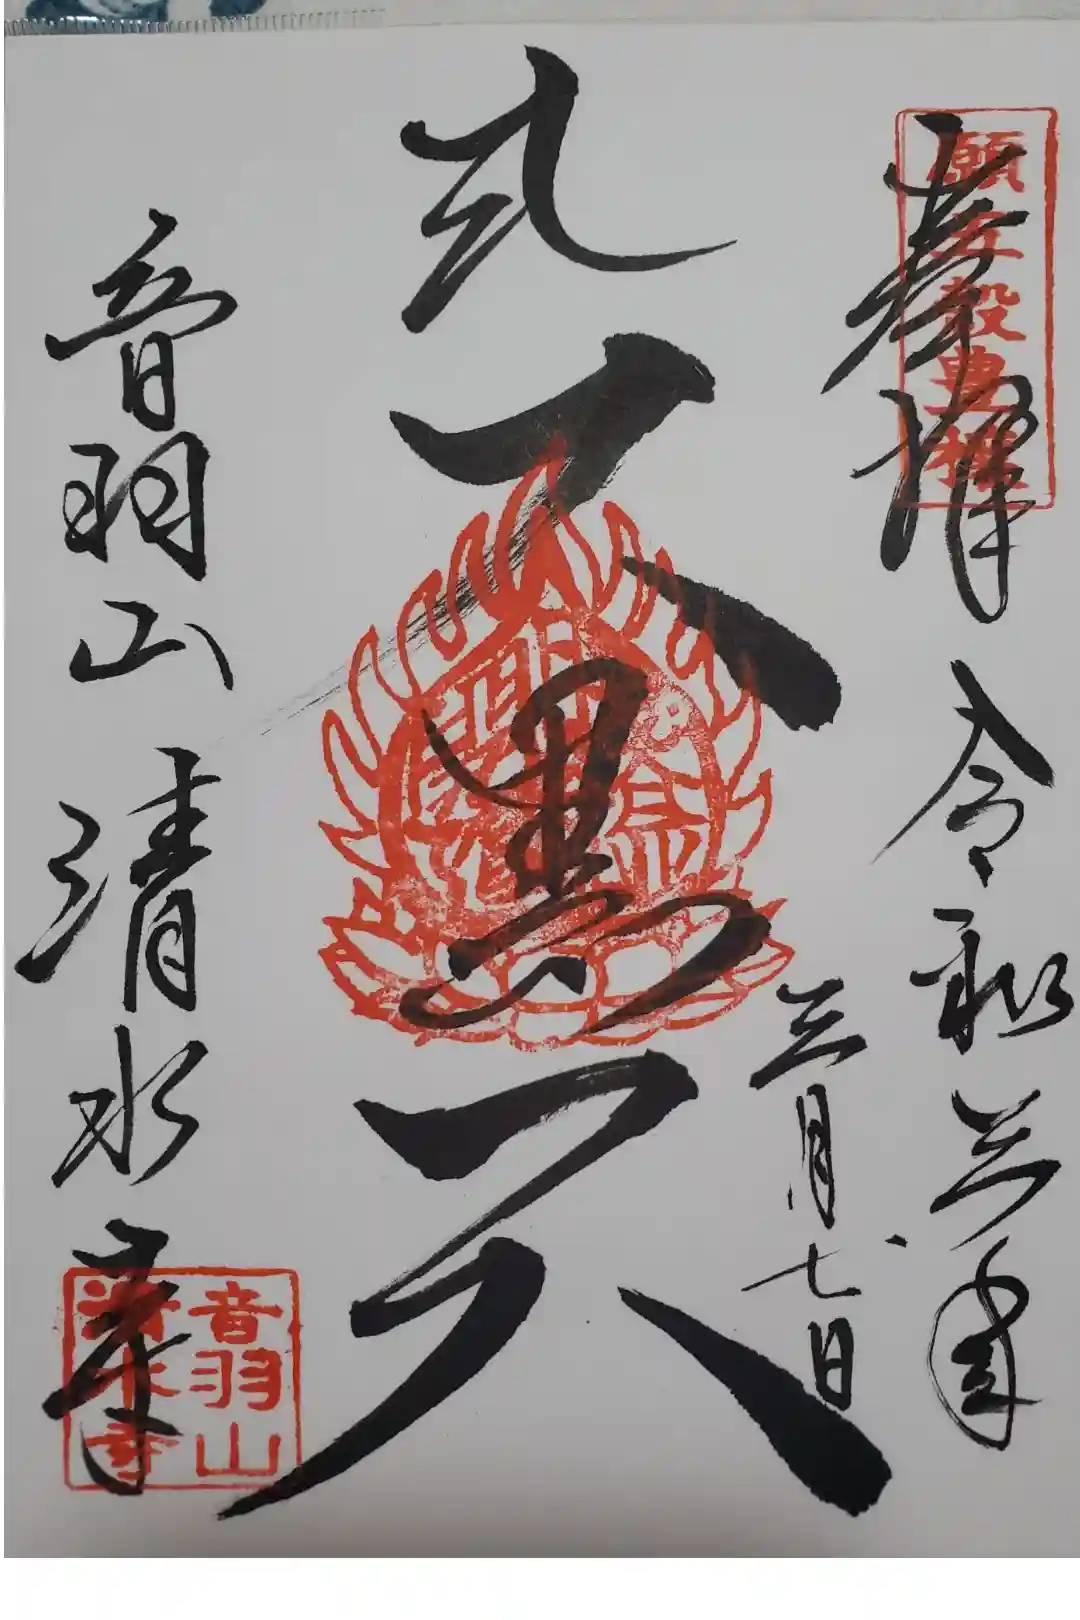 願五穀豊穣
奉拝 令和三年
三月七日
大黒天
音羽山 清水寺
音羽山
清水寺